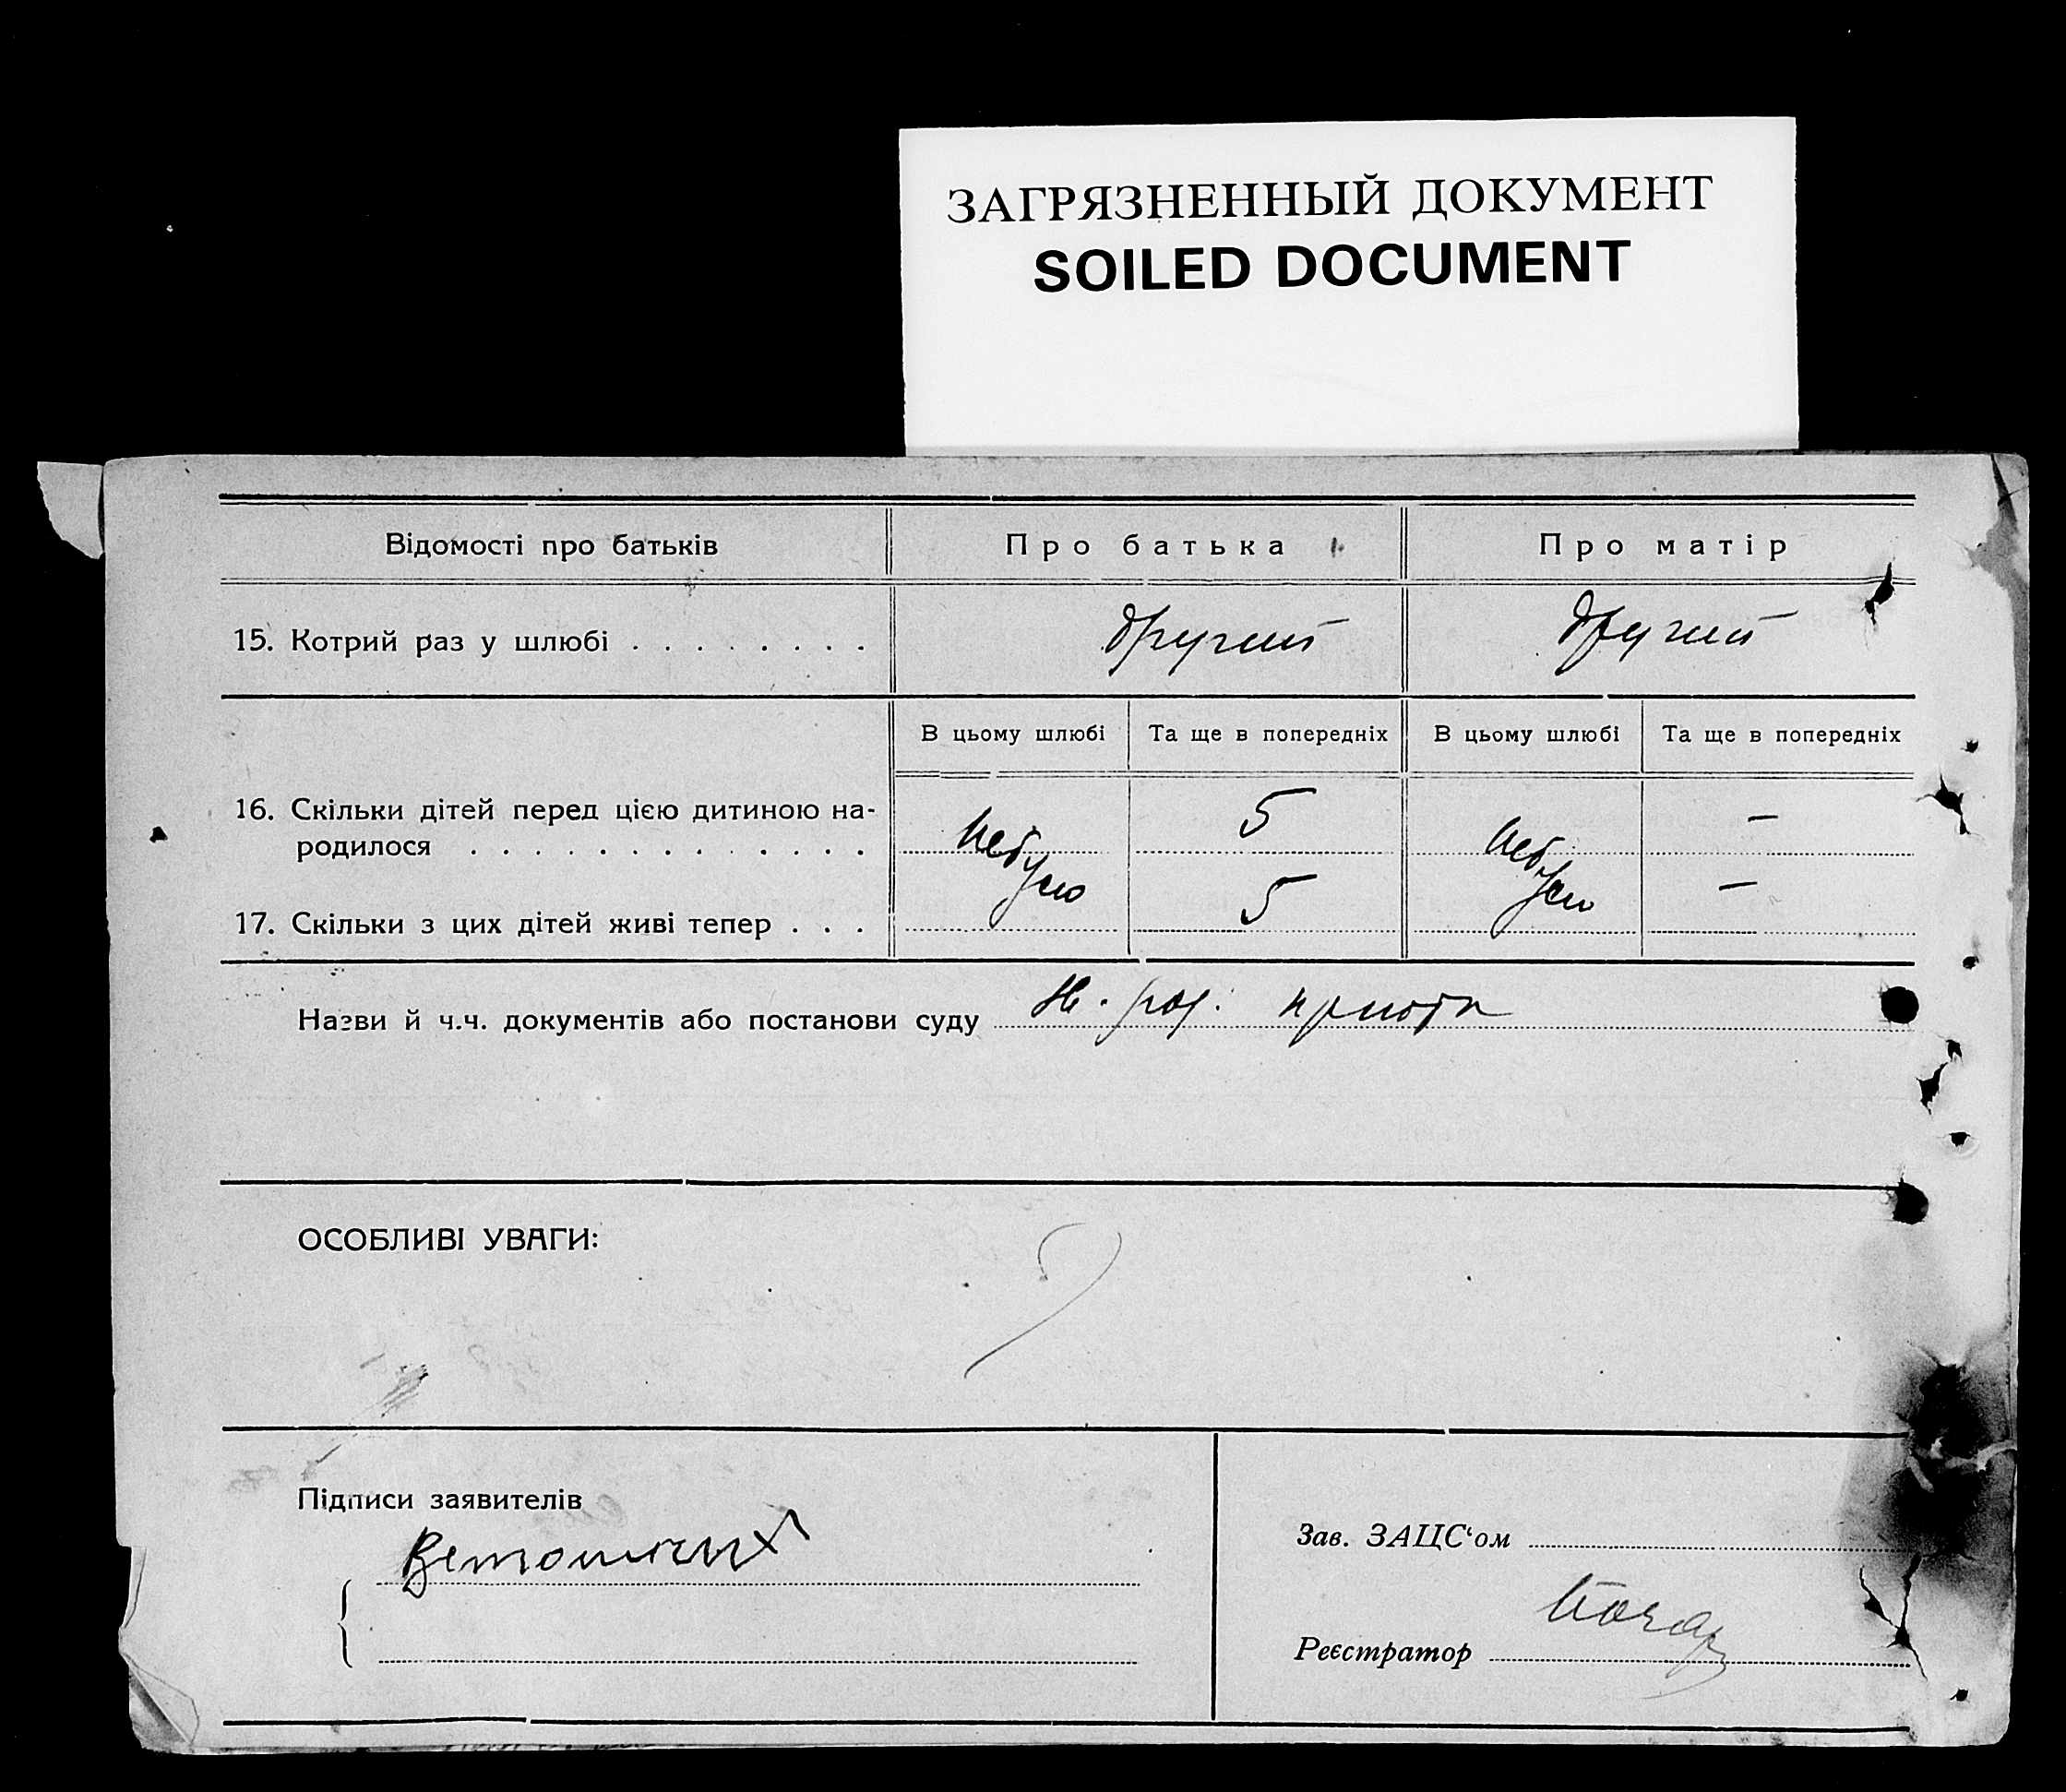 ЗАГРЯЗНЕННЫЙ ДОКУМЕНТ
SOILED DOCUMENT
Відомості про батьків Про батька Про матір
15. Котрий раз у шлюбі . . . . . . . . другий другий
В цьому шлюбі Та ще в попередніх В цьому шлюбі Та ще в попередніх
16. Скільки дітей перед цією дитиною на-
родилося . . . . . . . . . . . . . небуло 5 небуло —
17. Скільки з цих дітей живі тепер . . . 5 —
Назви й ч.ч. документів або постанови суду
ОСОБЛИВІ УВАГИ:
Підписи заявителів
Зав. ЗАЦС‘ом
Реєстратор